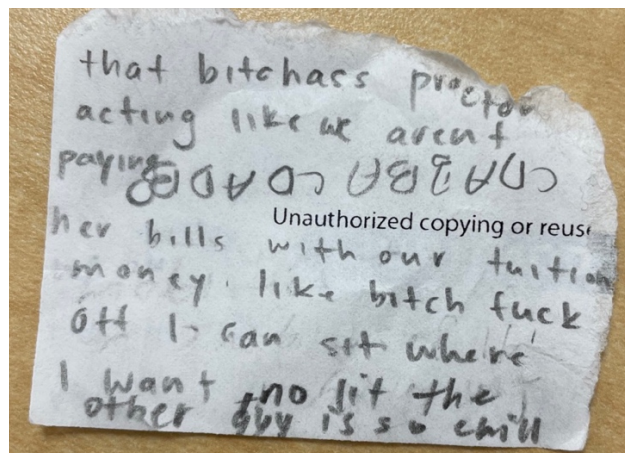 that bitchass proctor
acting like we arent
paying
Unauthorized copying or reuse
her bills with our tuition
money. like bitch fuck
off I can sit where
I want no lit the
other guy is so chill